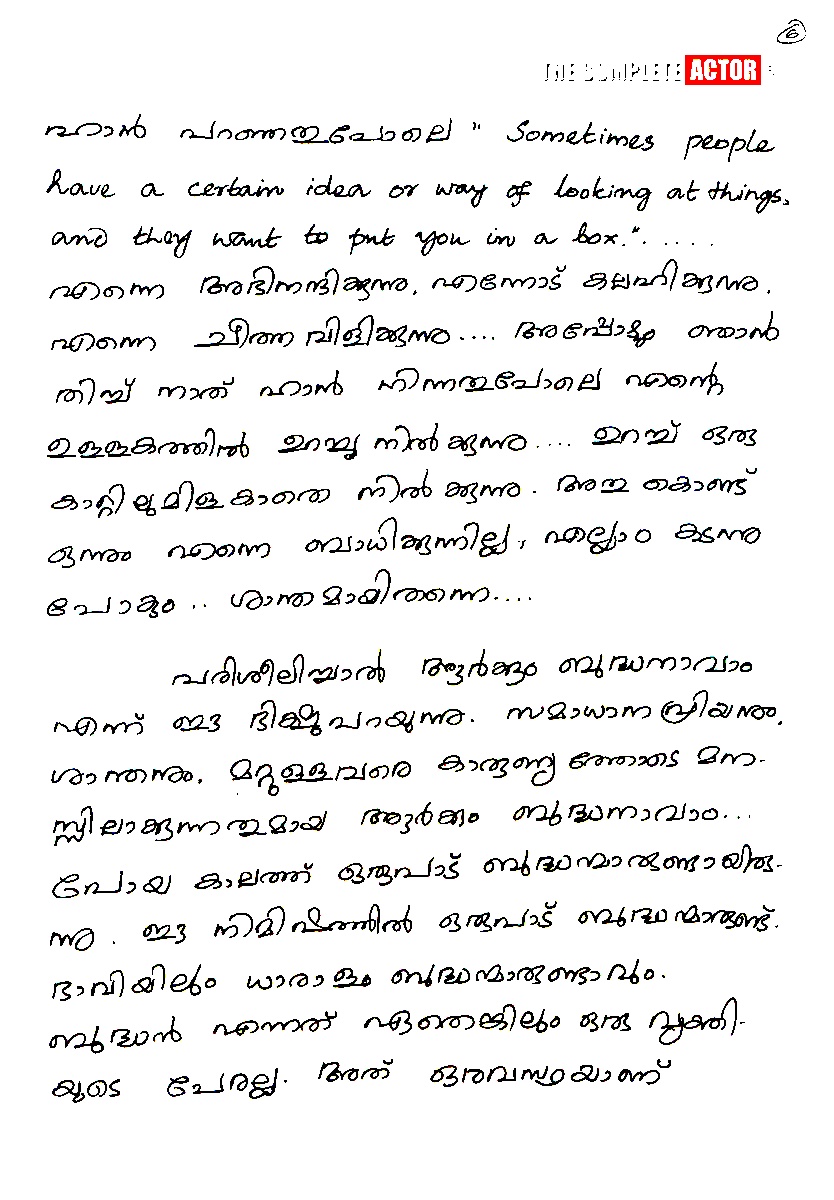 6
THE COMPLETE ACTOR
ഹാൻ പറഞ്ഞതുപോലെ " Sometimes people
have a certain idea or way of looking at things,
and they want to put you in a box.".....
എന്നെ അഭിനന്ദിക്കുന്നു, എന്നോട് കലഹിക്കുന്നു,
എന്നെ ചീത്ത വിളിക്കുന്നു.... അപ്പോഴും ഞാൻ
തിച്ച് നാത് ഹാൻ നിന്നതുപോലെ എന്റെ
ഉള്ളകത്തിൽ ഉറച്ചു നിൽക്കുന്നു.... ഉറച്ച് ഒരു
കാറ്റിലുമിളകാതെ നിൽക്കുന്നു. അതു കൊണ്ട്
ഒന്നും എന്നെ ബാധിക്കുന്നില്ല, എല്ലാം കടന്നു
പോകും.. ശാന്തമായിതന്നെ....
പരിശീലിച്ചാൽ ആർക്കും ബുദ്ധനാവാം
എന്ന് ഈ ഭിക്ഷു പറയുന്നു. സമാധാന പ്രിയനും,
ശാന്തനും, മറ്റുള്ളവരെ കാരുണ്യത്തോടെ മന-
സ്സിലാക്കുന്നതുമായ ആർക്കും ബുദ്ധനാവാം...
പോയ കാലത്ത് ഒരുപാട് ബുദ്ധന്മാരുണ്ടായിരു-
ന്നു. ഈ നിമിഷത്തിൽ ഒരുപാട് ബുദ്ധന്മാരുണ്ട്.
ഭാവിയിലും ധാരാളം ബുദ്ധന്മാരുണ്ടാവും.
ബുദ്ധൻ എന്നത് ഏതെങ്കിലും ഒരു വ്യക്തി-
യുടെ പേരല്ല. അത് ഒരവസ്ഥയാണ്